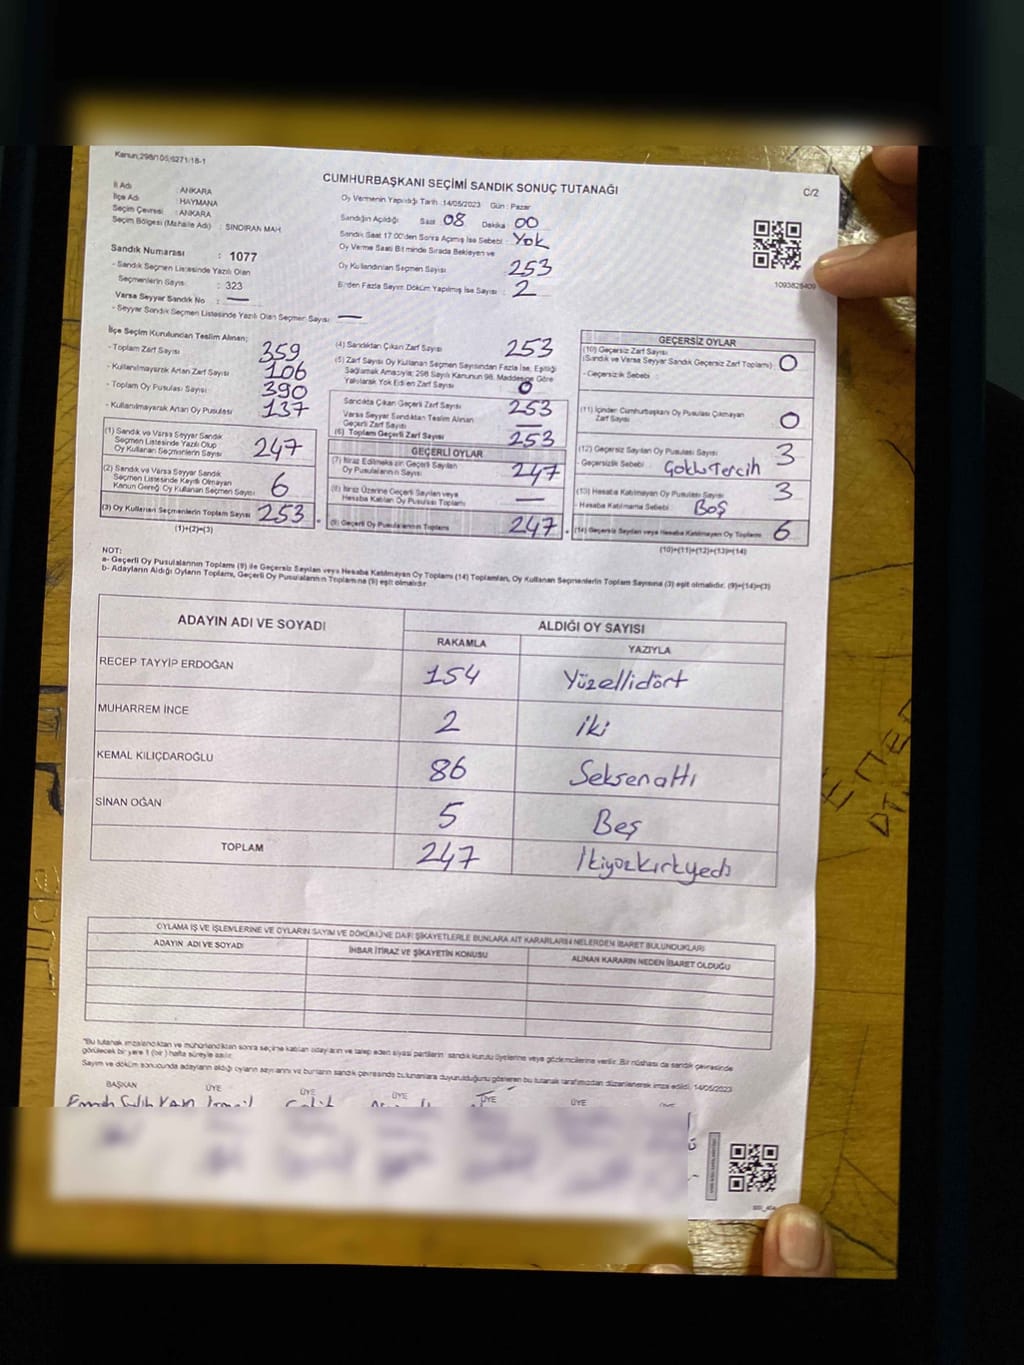 Kanun:298/105;6271/18-1
CUMHURBAŞKANI SEÇİMİ SANDIK SONUÇ TUTANAĞI
C/2
İl Adı : ANKARA
İlçe Adı : HAYMANA
Seçim Çevresi : ANKARA
Seçim Bölgesi (Mahalle Adı) : SINDIRAN MAH
Sandık Numarası : 1077
- Sandık Seçmen Listesinde Yazılı Olan
Seçmenlerin Sayısı : 323
Varsa Seyyar Sandık No : —
- Seyyar Sandık Seçmen Listesinde Yazılı Olan Seçmen Sayısı : —
Oy Vermenin Yapıldığı Tarih :14/05/2023 Gün : Pazar
Sandığın Açıldığı Saat 08 Dakika 00
Sandık Saat 17.00'den Sonra Açılmış İse Sebebi : Yok
Oy Verme Saati Bitiminde Sırada Bekleyen ve
Oy Kullandırılan Seçmen Sayısı 253
Birden Fazla Sayım Döküm Yapılmış İse Sayısı : 2
1093828409
İlçe Seçim Kurulundan Teslim Alınan;
- Toplam Zarf Sayısı 359
- Kullanılmayarak Artan Zarf Sayısı 106
- Toplam Oy Pusulası Sayısı 390
- Kullanılmayarak Artan Oy Pusulası 137
(1) Sandık ve Varsa Seyyar Sandık
Seçmen Listesinde Yazılı Olup
Oy Kullanan Seçmenlerin Sayısı 247
(2) Sandık ve Varsa Seyyar Sandık
Seçmen Listesinde Kayıtlı Olmayan
Kanun Gereği Oy Kullanan Seçmen Sayısı 6
(3) Oy Kullanan Seçmenlerin Toplam Sayısı 253
(1)+(2)=(3)
(4) Sandıktan Çıkan Zarf Sayısı 253
(5) Zarf Sayısı Oy Kullanan Seçmen Sayısından Fazla İse, Eşitliği
Sağlamak Amacıyla; 298 Sayılı Kanunun 98. Maddesine Göre
Yakılarak Yok Edilen Zarf Sayısı 0
Sandıkta Çıkan Geçerli Zarf Sayısı 253
Varsa Seyyar Sandıktan Teslim Alınan
Geçerli Zarf Sayısı —
(6) Toplam Geçerli Zarf Sayısı 253
GEÇERLİ OYLAR
(7) İtiraz Edilmeksizin Geçerli Sayılan
Oy Pusulalarının Sayısı 247
(8) İtiraz Üzerine Geçerli Sayılan veya
Hesaba Katılan Oy Pusulası Toplamı —
(9) Geçerli Oy Pusulalarının Toplamı 247
GEÇERSİZ OYLAR
(10) Geçersiz Zarf Sayısı
(Sandık ve Varsa Seyyar Sandık Geçersiz Zarf Toplamı) 0
- Geçersizlik Sebebi :
(11) İçinden Cumhurbaşkanı Oy Pusulası Çıkmayan
Zarf Sayısı 0
(12) Geçersiz Sayılan Oy Pusulası Sayısı 3
- Geçersizlik Sebebi : Goklu Tercih
(13) Hesaba Katılmayan Oy Pusulası Sayısı 3
- Hesaba Katılmama Sebebi : Boş
(14) Geçersiz Sayılan veya Hesaba Katılmayan Oy Toplamı 6
(10)+(11)+(12)+(13)=(14)
NOT:
a- Geçerli Oy Pusulalarının Toplamı (9) ile Geçersiz Sayılan veya Hesaba Katılmayan Oy Toplamı (14) Toplamları, Oy Kullanan Seçmenlerin Toplam Sayısına (3) eşit olmalıdır. (9)+(14)=(3)
b- Adayların Aldığı Oyların Toplamı, Geçerli Oy Pusulalarının Toplamına (9) eşit olmalıdır.
ADAYIN ADI VE SOYADI ALDIĞI OY SAYISI
RAKAMLA YAZIYLA
RECEP TAYYİP ERDOĞAN 154 Yüzellidört
MUHARREM İNCE 2 iki
KEMAL KILIÇDAROĞLU 86 Seksenaltı
SİNAN OĞAN 5 Beş
TOPLAM 247 İkiyüzkırkyedi
OYLAMA İŞ VE İŞLEMLERİNE VE OYLARIN SAYIM VE DÖKÜMÜNE DAİR ŞİKAYETLERLE BUNLARA AİT KARARLARIN NELERDEN İBARET BULUNDUKLARI
ADAYIN ADI VE SOYADI İHBAR İTİRAZ VE ŞİKAYETİN KONUSU ALINAN KARARIN NEDEN İBARET OLDUĞU
"Bu tutanak imzalandıktan ve mühürlendikten sonra seçime katılan adayların ve talep eden siyasi partilerin sandık kurulu üyelerine veya gözlemcilerine verilir. Bir nüshası da sandık çevresinde
görülecek bir yere 1 (bir) hafta süreyle asılır.
Sayım ve döküm sonucunda adayların aldığı oyların sayılarını ve bunların sandık çevresinde bulunanlara duyurulduğunu gösteren bu tutanak tarafımızdan düzenlenerek imza edildi. 14/05/2023
BAŞKAN ÜYE ÜYE ÜYE ÜYE ÜYE